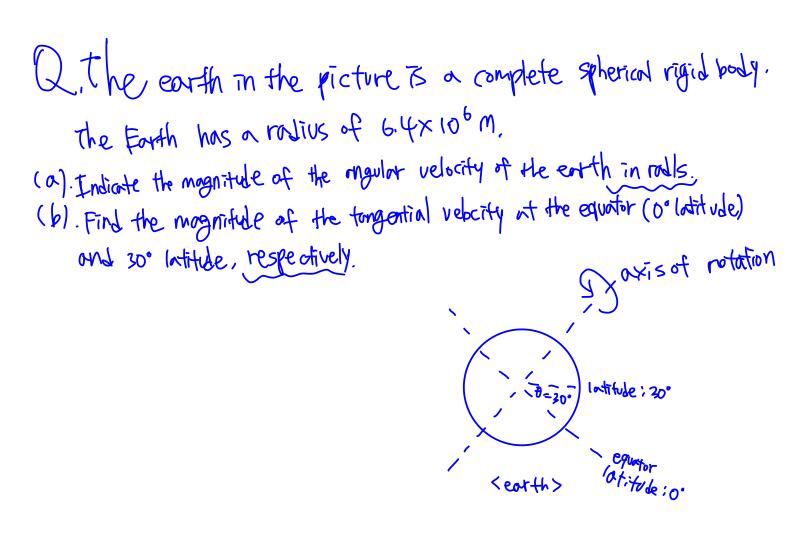 Q. The earth in the picture is a complete spherical rigid body.
The Earth has a radius of 6.4×10⁶ m.
(a). Indicate the magnitude of the angular velocity of the earth in rad/s.
(b). Find the magnitude of the tangential velocity at the equator (0° latitude)
and 30° latitude, respectively.
axis of rotation
θ=30°
latitude : 30°
equator
latitude : 0°
<earth>